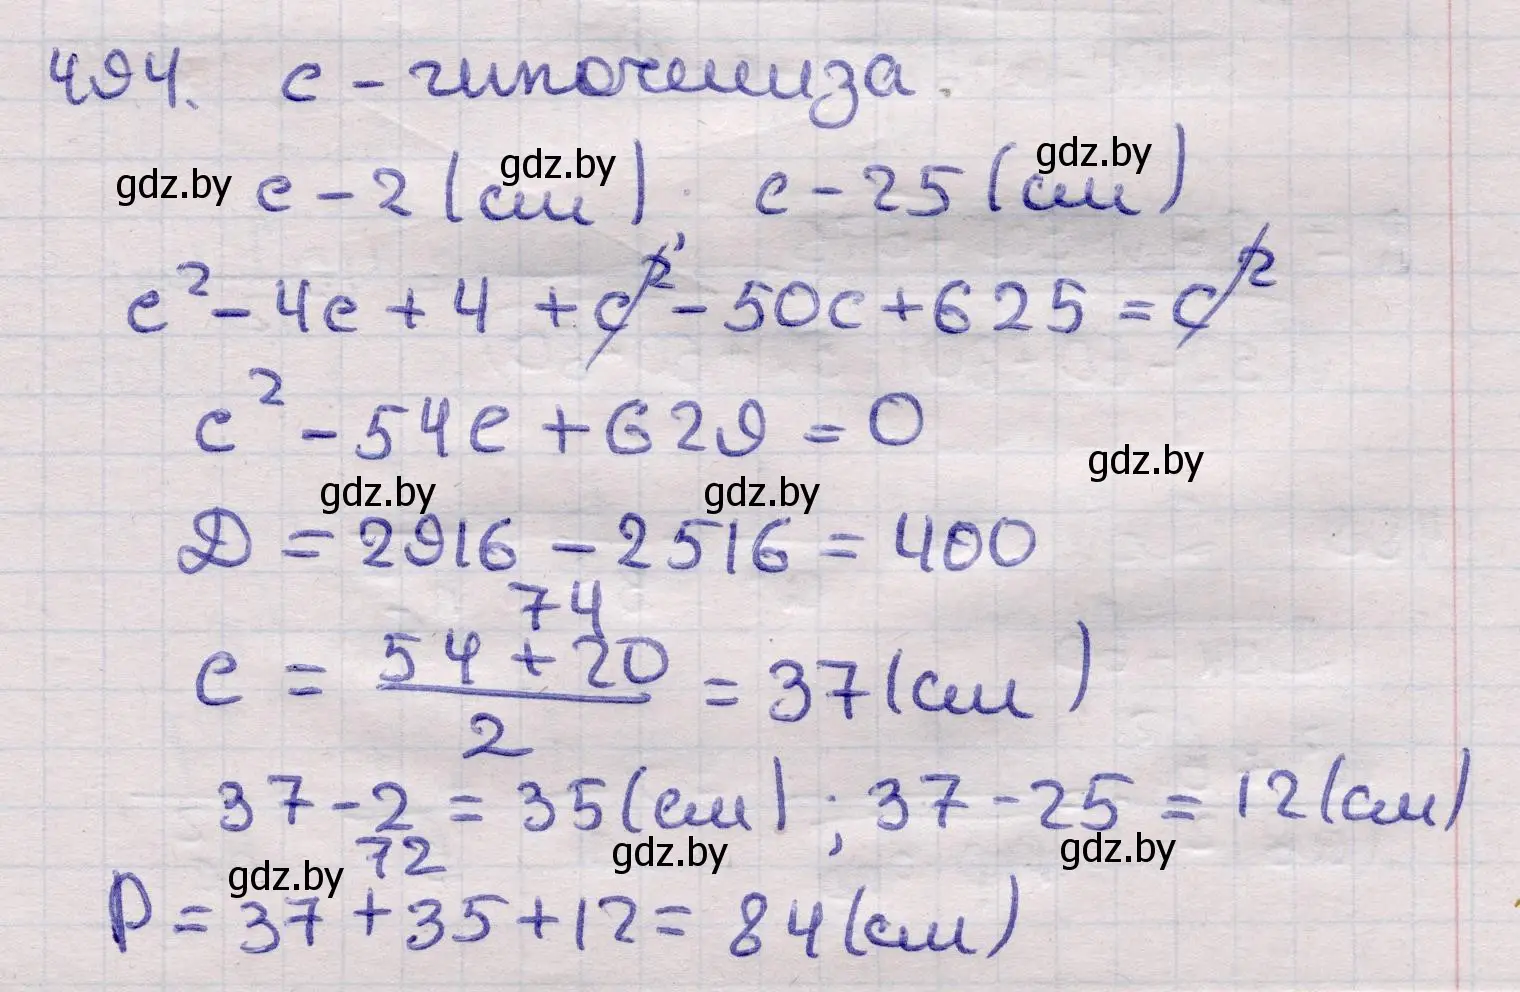 494. c - гипотенуза.
gdz.by gdz.by gdz.by
c - 2 (см); c - 25 (см)
c² - 4c + 4 + c² - 50c + 625 = c²
c² - 54c + 629 = 0
gdz.by gdz.by gdz.by
Д = 2916 - 2516 = 400
74
c = (54 + 20)/2 = 37 (см)
37 - 2 = 35 (см); 37 - 25 = 12 (см)
72
gdz.by gdz.by gdz.by
P = 37 + 35 + 12 = 84 (см)